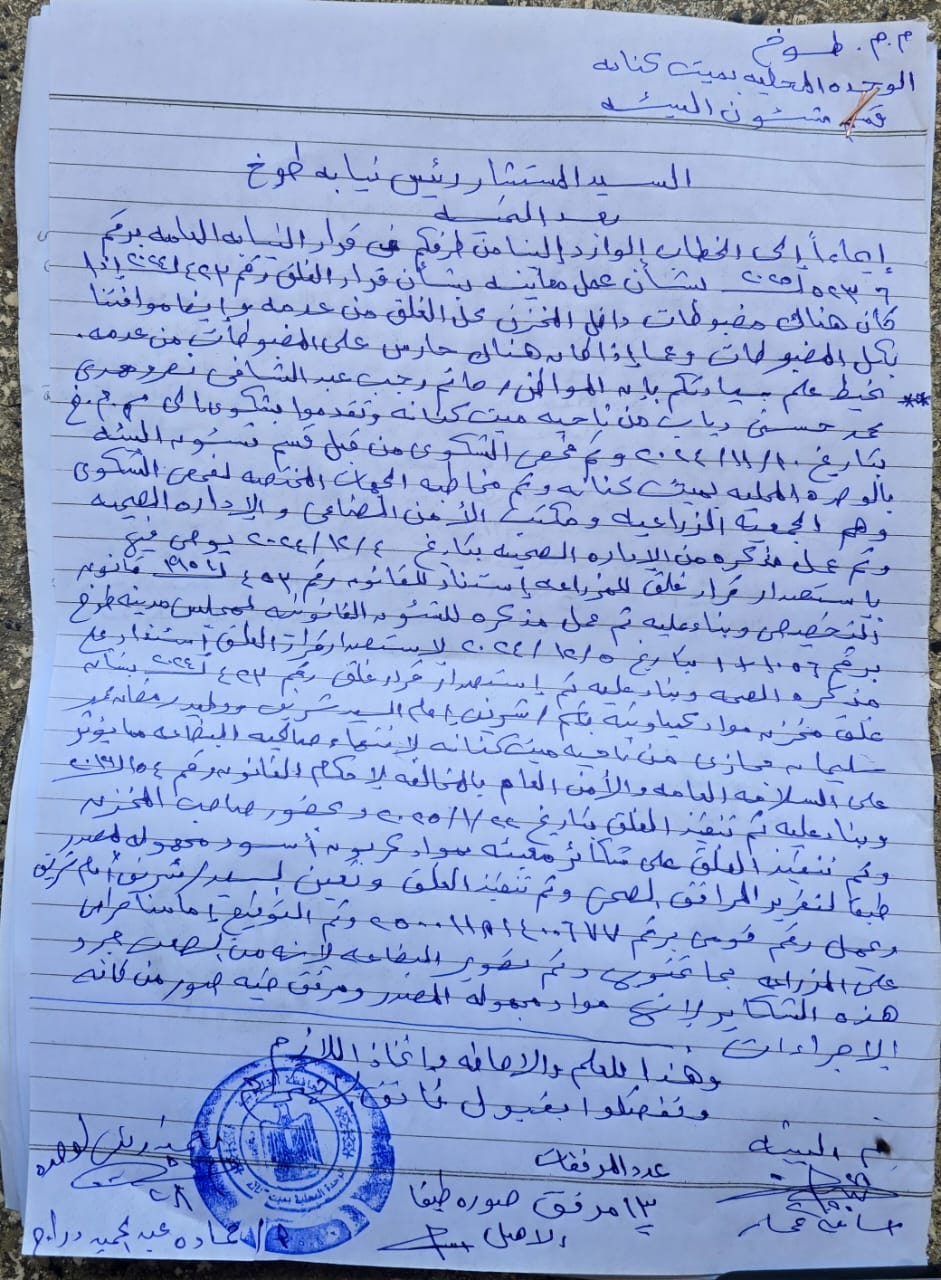 م.م. طوخ
الوحده المحليه بميت كنانه
قسم شئون البيئه
السيد المستشار رئيس نيابه طوخ
بعد التحيه
إيماءاً إلى الخطاب الوارد الينا من طرفكم فى قرار النيابه العامه برقم
٥٢٣٠٦ لـ ٢٠٢٥ بشأن عمل معاينه بشأن قرار الغلق رقم ٤٢٣ لـ ٢٠٢٤ إذا
كان هناك مضبوطات داخل المخزن محل الغلق من عدمه وايضا موافتنا
بكل المضبوطات وعما إذا كان هناك حارس على المضبوطات من عدمه.
** نحيط علم سيادتكم بانه المواطن / حاتم رجب عبد الشافى نصر وهدى
محمد حسنى دياب من ناحيه ميت كنانه وتقدموا بشكوى الى م.م.
بتاريخ ٢٠٢٤/١١/١٠ وتم فحص الشكوى من قبل قسم شئون البيئه
بالوحده المحليه بميت كنانه وتم مخاطبه الجهات المختصه لفحص الشكوى
وهم الجمعيه الزراعيه ومكتب الأمن الصناعى والإداره الصحيه
وتم عمل مذكره من الإداره الصحيه بتاريخ ٢٠٢٤/١٢/٤ يوصى فيها
باستصدار قرار غلق للمزرعه إستناداً للقانون رقم ٤٥٣ لـ ١٩٥٤ قانون
التخصيص وبناء عليه تم عمل مذكره للشئون القانونيه لمجلس مدينه طوخ
برقم ١٠٥٦ بتاريخ ٢٠٢٤/١٢/٥ لاستصدار قرار الغلق إستناداً على
مذكره الصحه وبناء عليه تم إستصدار قرار غلق رقم ٤٢٣ لـ ٢٠٢٤ بشأن
غلق مخزن مواد كيماويه باسم / شريف إمام السيد شريف ووليد رمضان
سليمان حجازى من ناحيه ميت كنانه لانتهاء صلاحيه البضاعه مما يؤثر
على السلامه العامه والأمن العام بالمخالفه لاحكام القانون رقم ١٥٤ لـ ٢٠١٩
وبناء عليه تم تنفيذ الغلق بتاريخ ٢٠٢٥/١/٢٢ وبحضور صاحب المخزن
وتم تنفيذ الغلق على شكائر معبئه بمواد كربون أسود مجهوله المصدر
طبقا لتقرير المرافق الصحى وتم تنفيذ الغلق وتعين السيد / شريف إمام شريف
ويحمل رقم قومى برقم وتم التوقيع إمامنا حراس
على المزرعه بما تحتوى وتم تصوير البضاعه لانه من الصعب جرد
هذه الشكاير لإنها مواد مجهوله المصدر ومرفق طيه صور من كافه
الإجراءات.
وهذا للعلم والاحاطه وإتخاذ اللازم
وتفضلوا بقبول فائق
قسم البيئه
عدد المرفقات
١٣ مرفق صوره طبقا
للاصل
رئيس الوحده
عبد الحميد دراج